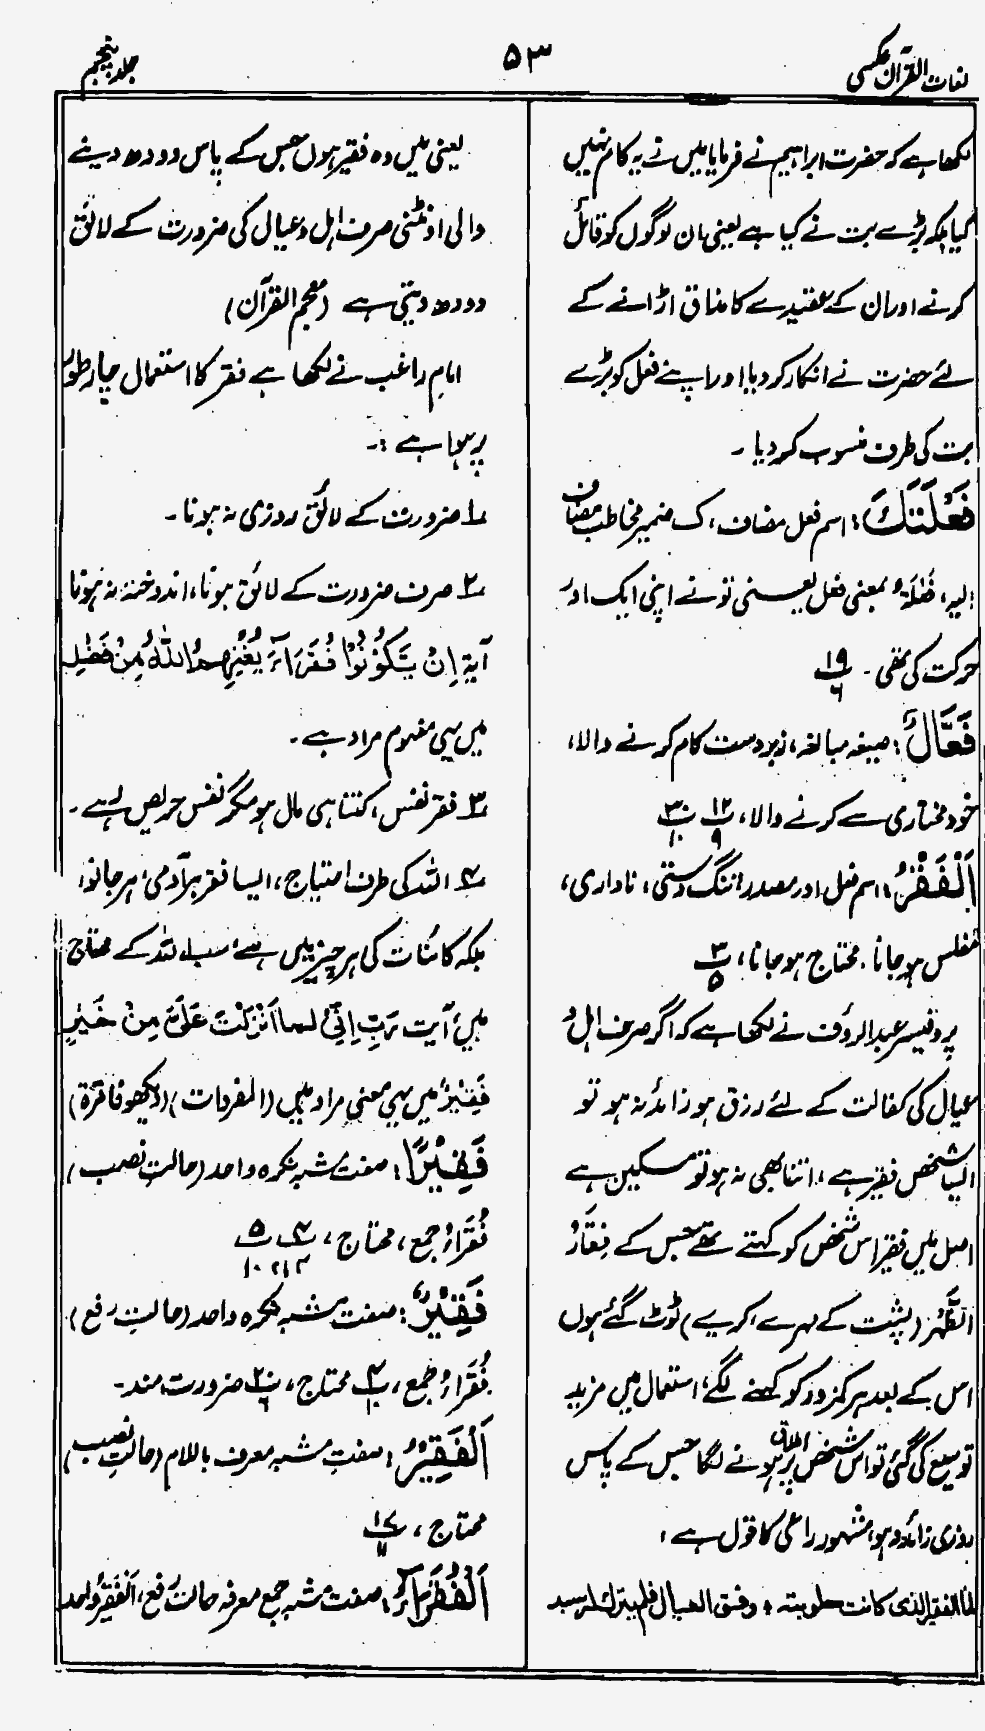 لغات القرآن عکسی
۵۳
جلد پنجم
لکھا ہے کہ حضرت ابراہیم نے فرمایا میں نے یہ کام نہیں
کیا بلکہ بڑے بت نے کیا ہے یعنی ان لوگوں کو قائل
کرنے اور ان کے عقیدے کا مذاق اڑانے کے
لئے حضرت نے انکار کر دیا اور اپنے فعل کو بڑے
بت کی طرف منسوب کر دیا ۔
فَعْلَتَكَ : اسم فعل مضاف، ک ضمیر مخاطب مضاف
الیہ، فَعْلَۃٌ بمعنی فعل یعنی تو نے اپنی ایک اور
حرکت کی تھی ۔ ۱۹/۶
فَعَّالٌ : صیغہ مبالغہ، زبردست کام کرنے والا،
خود مختاری سے کرنے والا، ۱۲/۹ ۳۰/۱۰
اَلْفَقْرُ : اسم فعل اور مصدر، تنگ دستی، ناداری،
مفلس ہو جانا، محتاج ہو جانا، ۳/۵
پروفیسر عبدالرؤف نے لکھا ہے کہ اگر صرف اہل و
عیال کی کفالت کے لئے رزق ہو زائد نہ ہو تو
ایسا شخص فقیر ہے، اتنا بھی نہ ہو تو مسکین ہے
اصل میں فقیر اس شخص کو کہتے تھے جس کے فِقَارُ
الظَّہْر (پشت کے مہرے، کریے) ٹوٹ گئے ہوں
اس کے بعد ہر کمزور کو کہنے لگے، استعمال میں مزید
توسیع کی گئی تو اس شخص پر اطلاق ہونے لگا جس کے پاس
روزی زائد نہ ہو، مشہور راعی کا قول ہے :
اما الفقیر الذی کانت حلوبتہ ؛ وفق العیال فلم یترک لہ سبد
یعنی میں وہ فقیر ہوں جس کے پاس دودھ دینے
والی اونٹنی صرف اہل و عیال کی ضرورت کے لائق
دودھ دیتی ہے (معجم القرآن)
امام راغب نے لکھا ہے فقر کا استعمال چار طور
پر ہوا ہے :۔
۱۔ ضرورت کے لائق روزی نہ ہونا ۔
۲۔ صرف ضرورت کے لائق ہونا، اندوختہ نہ ہونا
آیۃ اِنْ یَّکُوْنُوْا فُقَرَاءَ یُغْنِہِمُ اللہُ مِنْ فَضْلِہٖ
میں یہی مفہوم مراد ہے ۔
۳۔ فقر نفس، کتنا ہی مال ہو مگر نفس حریص رہے ۔
۴۔ اللہ کی طرف احتیاج، ایسا فقر ہر آدمی، ہر جانور،
بلکہ کائنات کی ہر چیز میں ہے، سب اللہ کے محتاج
ہیں، آیت رَبِّ اِنِّیْ لِمَا اَنْزَلْتَ عَلَیَّ مِنْ خَیْرٍ
فَقِیْرٌ میں یہی معنی مراد ہیں (المفردات) (دیکھو فاقرۃ)
فَقِیْرًا : صفت مشبہ نکرہ واحد (حالت نصب)
فُقَرَاءُ جمع، محتاج، ۴ ۵
۱۰
فَقِیْرٌ : صفت مشبہ نکرہ واحد (حالت رفع)
فُقَرَاءُ جمع، ۴/۱ محتاج، ۲۰/۶ ضرورت مند ۔
اَلْفَقِیْرَ : صفتِ مشبہ معرف باللام (حالتِ نصب)
محتاج، ۱۷/۱۱
اَلْفُقَرَاءُ : صفت مشبہ جمع معرفہ حالت رفع، اَلْفَقِیْرُ واحد